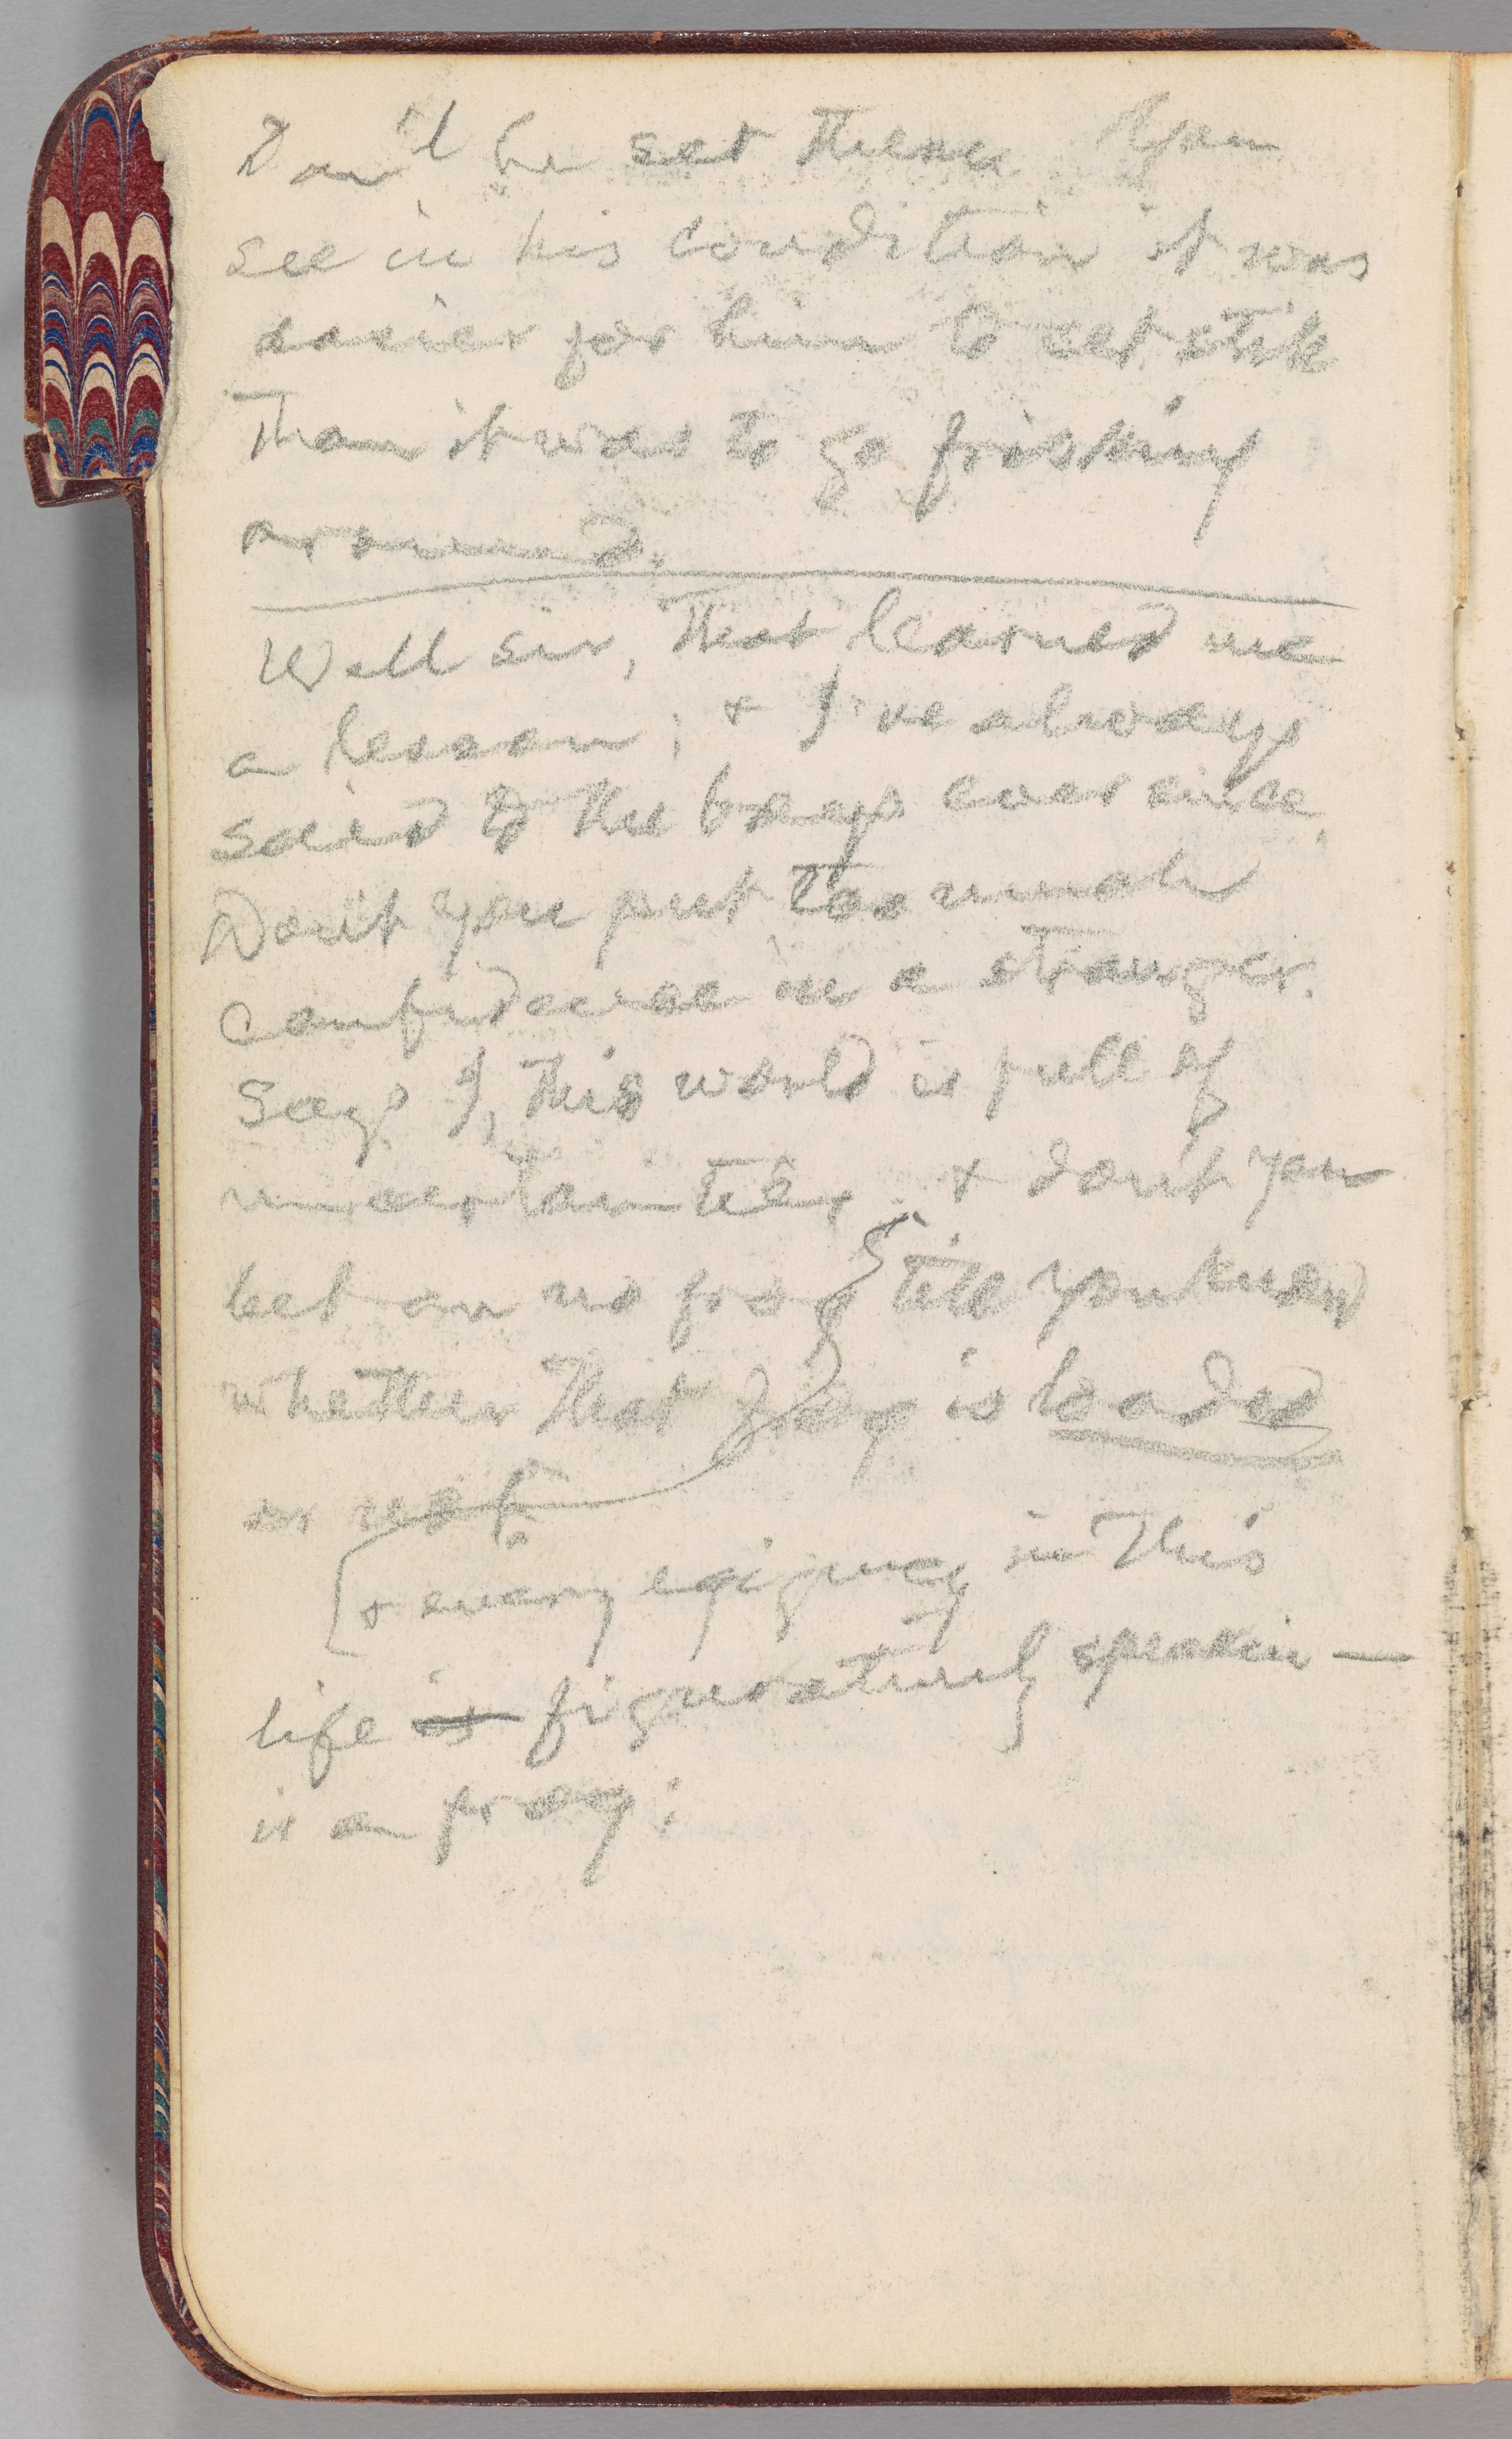 Dan'l he set there. You
see in his condition it was
easier for him to set still
than it was to go frisking
around.
Well sir, that learned me
a lesson; & I've always
said to the boys ever since,
Don't you put too much
confidence in a stranger.
Says I, this world is full of
uncertainties, & don't you
bet on no frog till you know
whether that frog is loaded
or not
[& every exigency in this
life is figuratively speakin —
is a frog;